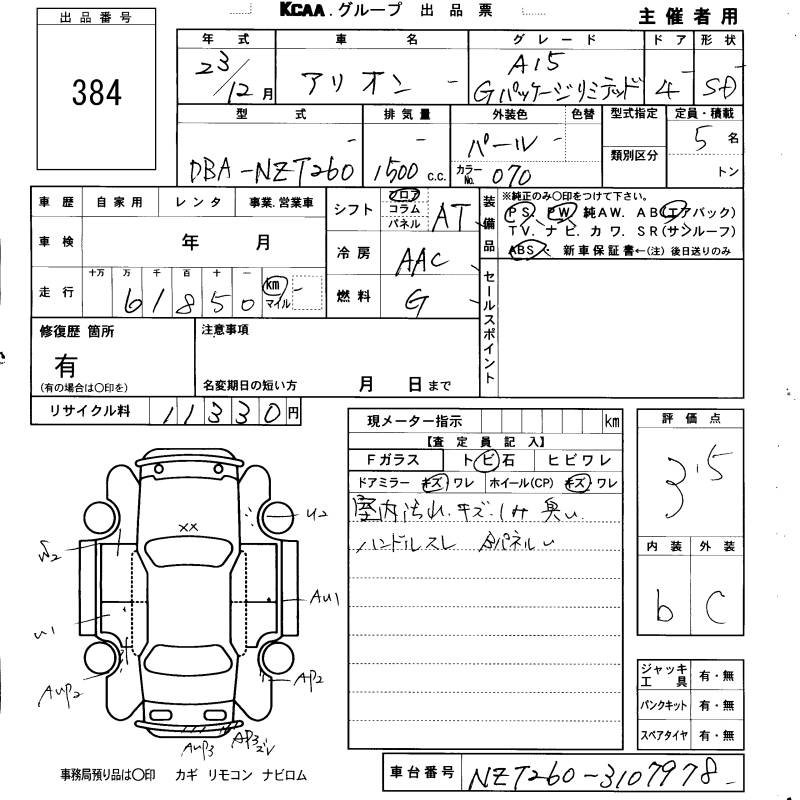 KCAA.グループ 出品票
主催者用
出品番号
384
年式 車名 グレード ドア 形状
23/12月 アリオン A15 Gパッケージリミテッド 4 SD
型式 排気量 外装色 色替 型式指定 定員・積載
DBA-NZT260 1500 c.c. パール 5名
カラーNo. 070 類別区分 トン
車歴 自家用 レンタ 事業.営業車
車検 年 月
走行 十万 万 千 百 十
61850 km マイル
シフト フロア コラム パネル AT
冷房 AAC
燃料 G
装備品
※純正のみ〇印をつけて下さい。
PS. PW. 純AW. AB(エアバック)
TV. ナビ. カワ. SR(サンルーフ)
ABS. 新車保証書←(注)後日送りのみ
セールスポイント
修復歴 箇所
有
(有の場合は〇印を)
注意事項
名変期日の短い方 月 日まで
リサイクル料 11330円
現メーター指示 km
【査定員記入】
Fガラス トビ石 ヒビワレ
ドアミラー キズ ワレ ホイール(CP) キズ ワレ
室内汚れ.キズ.シミ 臭い
ハンドルスレ Aパネルu
評価点
3.5
内装 外装
b C
ジャッキ工具 有・無
パンクキット 有・無
スペアタイヤ 有・無
XX
U2
U1
AU1
AUP2
AP2
AUP3
AP3
事務局預り品は〇印 カギ リモコン ナビロム
車台番号 NZT260-3107978